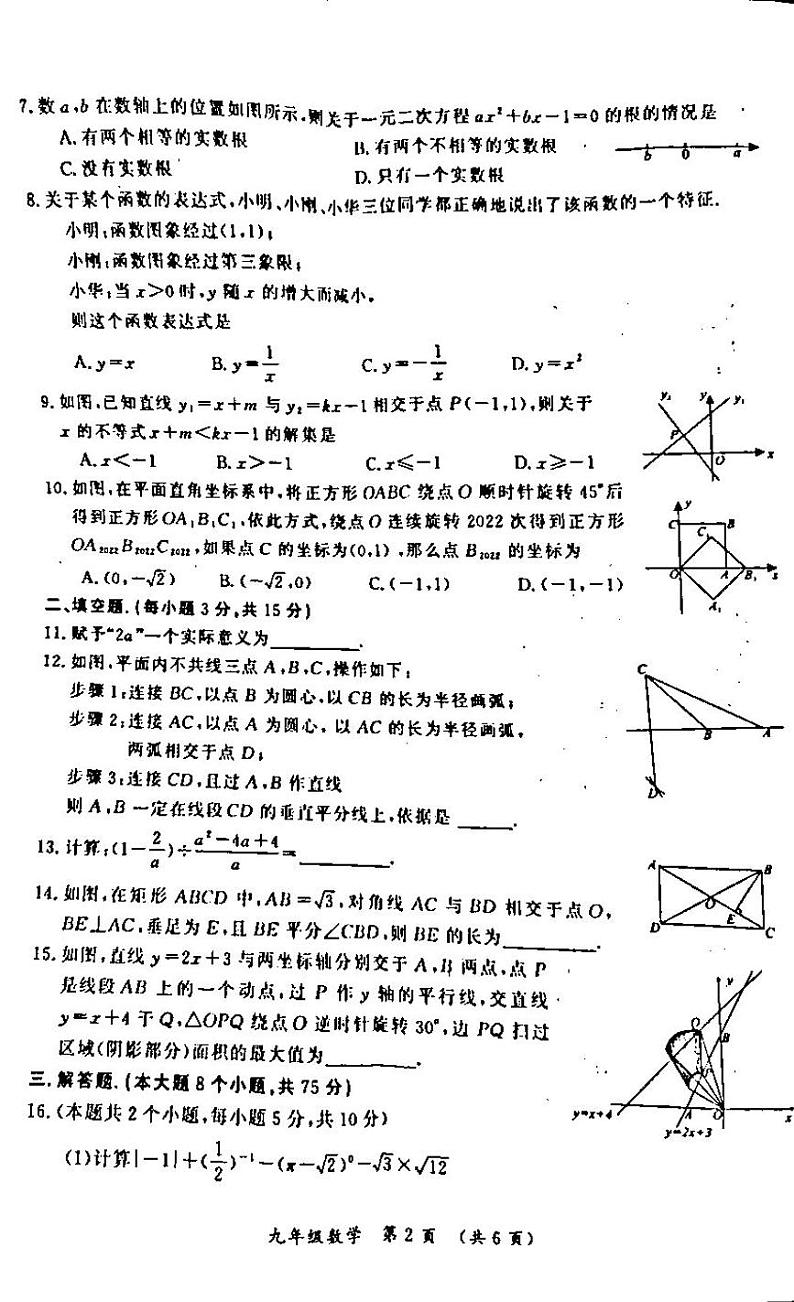 7.数a,b在数轴上的位置如图所示,则关于一元二次方程ax²+bx-1=0的根的情况是
A.有两个相等的实数根
B.有两个不相等的实数根
C.没有实数根
D.只有一个实数根
b 0 a
8.关于某个函数的表达式,小明、小刚、小华三位同学都正确地说出了该函数的一个特征.
小明:函数图象经过(1,1);
小刚:函数图象经过第三象限;
小华:当x>0时,y随x的增大而减小。
则这个函数表达式是
A.y=x B.y=1/x C.y=-1/x D.y=x²
9.如图,已知直线y₁=x+m与y₂=kx-1相交于点P(-1,1),则关于
x的不等式x+m<kx-1的解集是
A.x<-1 B.x>-1 C.x≤-1 D.x≥-1
y₂ y y₁
P
O x
10.如图,在平面直角坐标系中,将正方形OABC绕点O顺时针旋转45°后
得到正方形OA₁B₁C₁,依此方式,绕点O连续旋转2022次得到正方形
OA₂₀₂₂B₂₀₂₂C₂₀₂₂,如果点C的坐标为(0,1),那么点B₂₀₂₂的坐标为
A.(0,-√2) B.(-√2,0) C.(-1,1) D.(-1,-1)
y
C B
C₁
O A B₁ x
A₁
二、填空题.(每小题3分,共15分)
11.赋予“2a”一个实际意义为________.
12.如图,平面内不共线三点A,B,C,操作如下:
步骤1:连接BC,以点B为圆心,以CB的长为半径画弧;
步骤2:连接AC,以点A为圆心,以AC的长为半径画弧,
两弧相交于点D;
步骤3:连接CD,且过A,B作直线
则A,B一定在线段CD的垂直平分线上,依据是______.
C
B A
D
13.计算:(1-2/a)÷(a²-4a+4)/a=________.
14.如图,在矩形ABCD中,AB=√3,对角线AC与BD相交于点O,
BE⊥AC,垂足为E,且BE平分∠CBD,则BE的长为________.
A B
O
E
D C
15.如图,直线y=2x+3与两坐标轴分别交于A,B两点,点P
是线段AB上的一个动点,过P作y轴的平行线,交直线
y=x+4于Q,△OPQ绕点O逆时针旋转30°,边PQ扫过
区域(阴影部分)面积的最大值为________.
y
Q
B
y=x+4 A O x
y=2x+3
三.解答题.(本大题8个小题,共75分)
16.(本题共2个小题,每小题5分,共10分)
(1)计算|-1|+(1/2)⁻¹-(π-√2)⁰-√3×√12
九年级数学 第2页 (共6页)